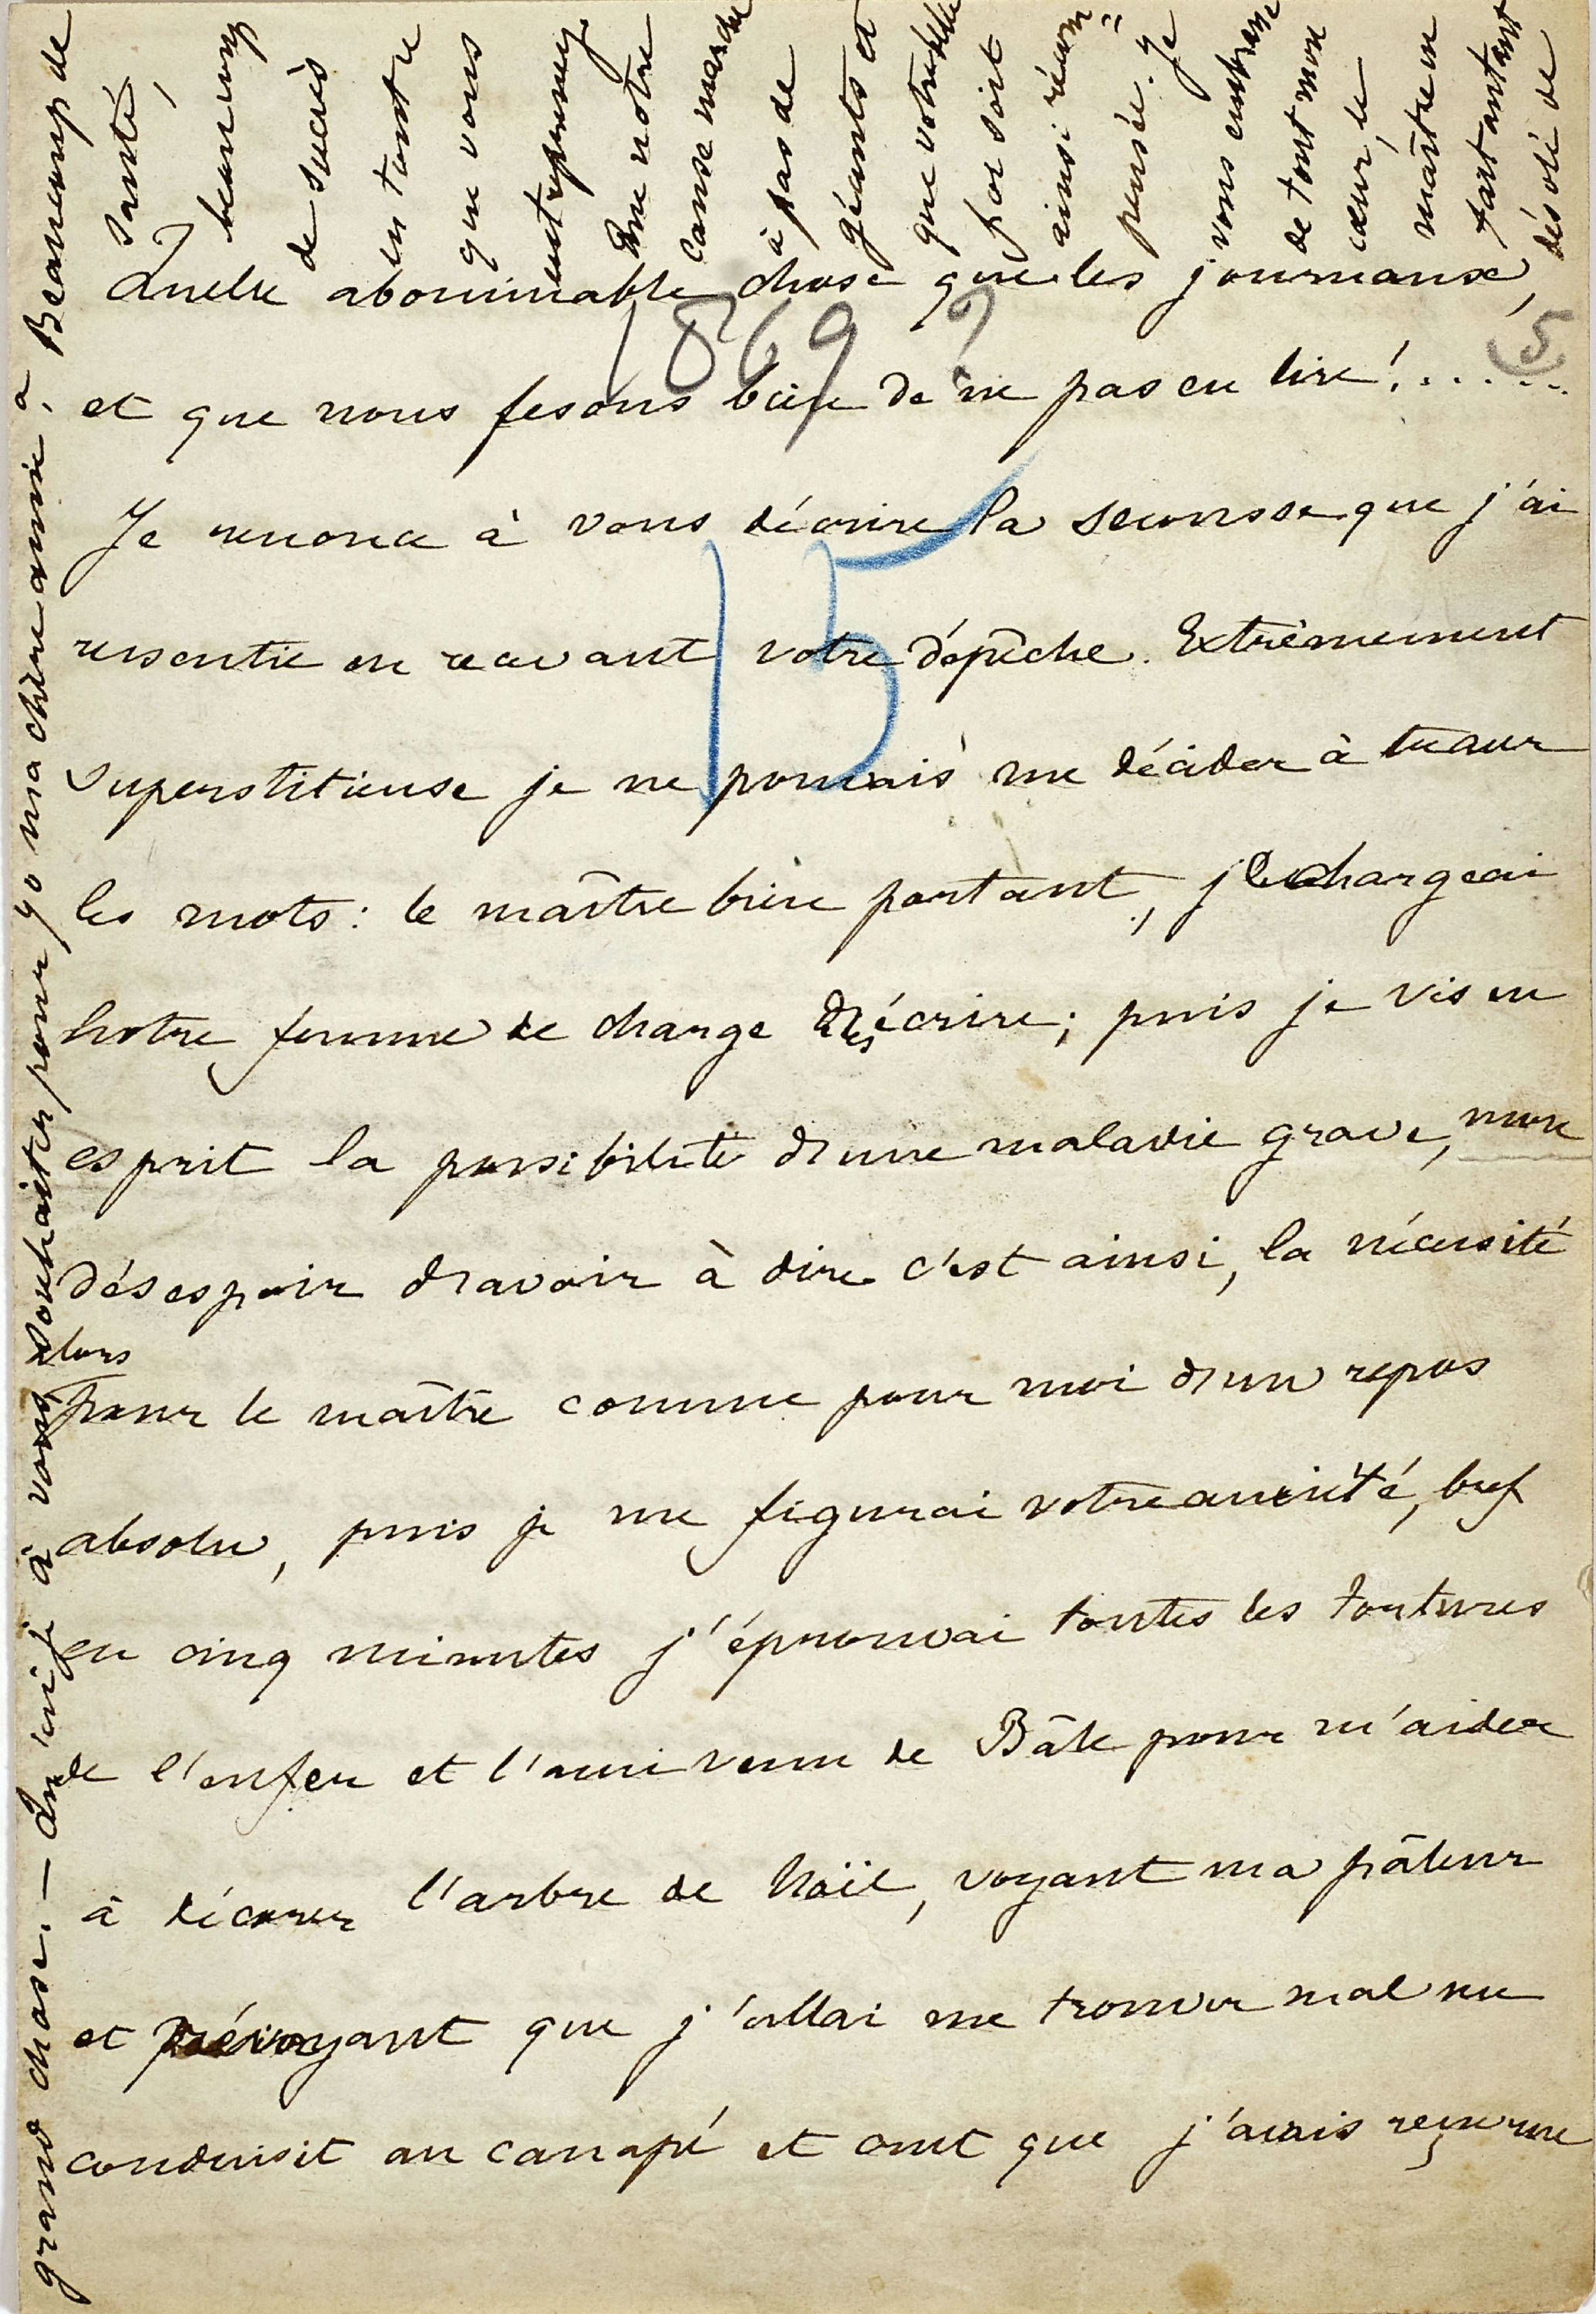 Quelle abominable chose que les journaux,
1869 ?
5
et que nous fesons bien de ne pas en lire! . . . . . .
Je renonce à vous décrire la secousse que j'ai
15
ressentie en recevant votre dépêche. Extrêmement
superstitieuse je ne pouvais me décider à tracer
les mots: le maître bien portant, je chargeai
notre femme de charge d'écrire; puis je vis en
esprit la possibilité d'une maladie grave, mon
désespoir d'avoir à dire c'est ainsi, la nécessité
alors
pour le maître comme pour moi d'un repos
absolu, puis je me figurai votre anxiété, bref
en cinq minutes j'éprouvai toutes les tortures
de l'enfer et l'ami venu de Bâle pour m'aider
à décorer l'arbre de Noël, voyant ma pâleur
et prévoyant que j'allai me trouver mal me
conduisit au canapé et crut que j'avais reçu une
grand chose. — Qu'ai-je à vous souhaiter pour 70 ma chère amie, a Beaucoup de
santé,
beaucoup
de succès
en tout ce
que vous
entreprenez
Que notre
cause marche
à pas de
géants et
que votre belle
foi soit
ainsi récom=
pensée. Je
vous embrasse
de tout mon
cœur, le
maître en
fait autant
désolé de